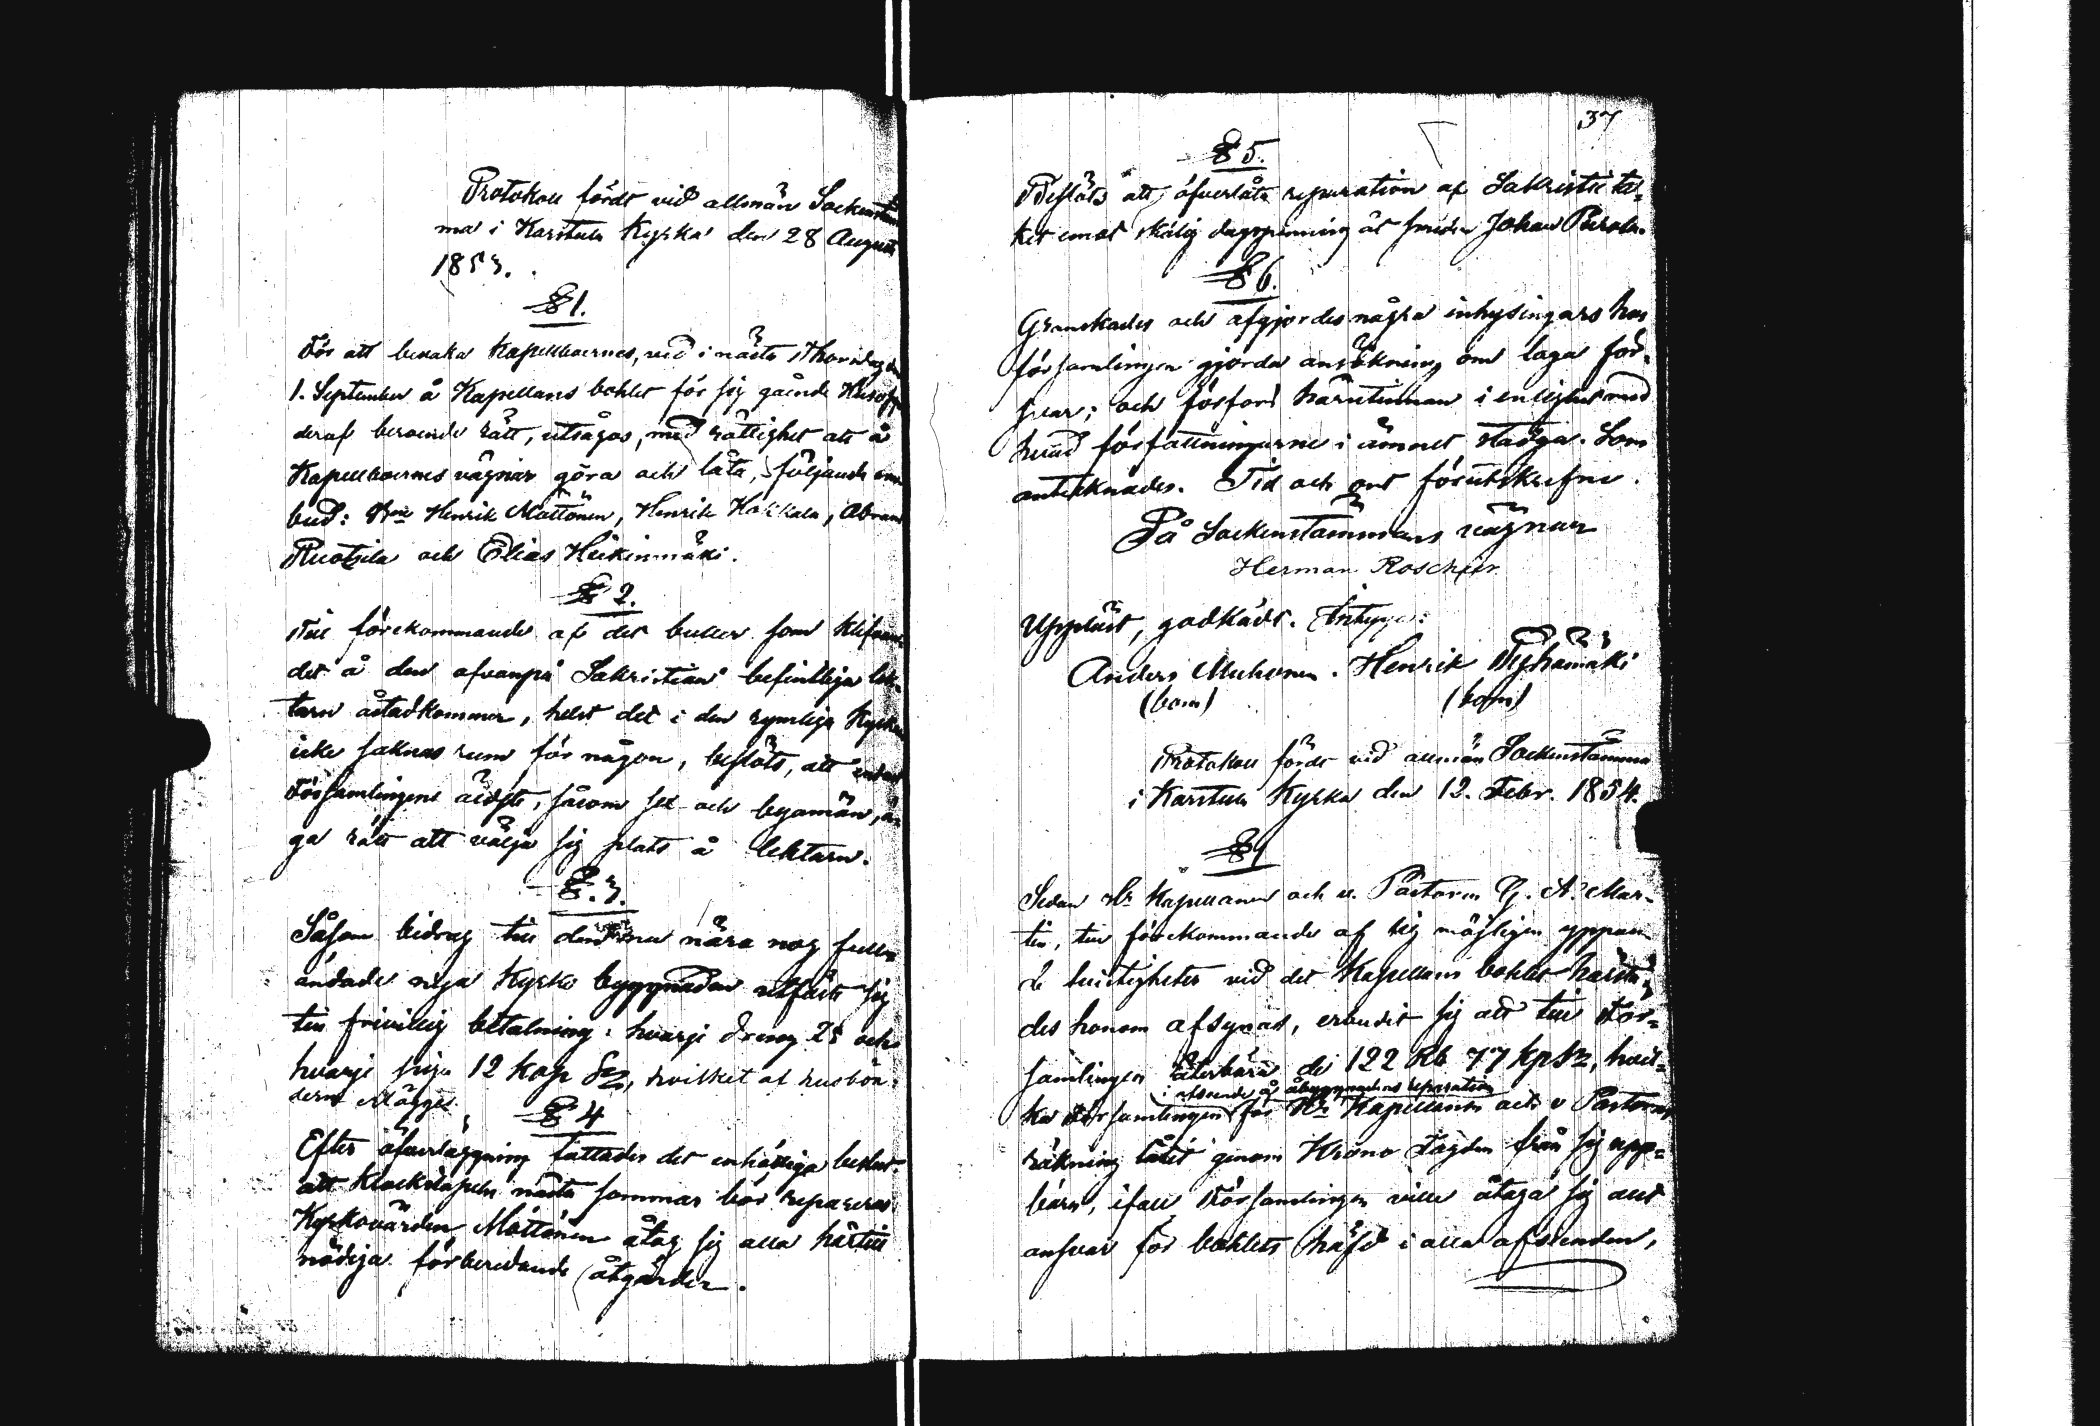 Protokoll fördt vid allmän Sockenstäm
ma i Karstula Kyrka den 28 Augusti
1853.
§ 1.
För att bevaka Kapellboernes, vid i nästa Thorsdag den
1. September å Kapellans bohlet för sig gående Husesyn
deraf beroende rätt, utsågos, med rättighet att å
Kapellboernes vägnar göra och låta, följande om-
bud: Henrik Möttönen, Henrik Hokkala, Abram
Ruotsila och Elias Heikinmäki.
§ 2.
Till förekommande af det buller som klifvan-
det å den ofvanpå Sakristian befintliga läk-
taren åstadkommer, helst det i den rymliga Kyrkan
icke saknas rum för någon, beslöts, att endast
Församlingens äldste, såsom sex och byamän, ä-
ga rätt att välja sig plats å lektarn.
§. 3.
Såsom bidrag till den nu nära nog full-
ändade nya Kyrko byggnaden utfäste sig
till frivillig betalning: hvarje dräng 25 och
hvarje piga 12 kop Sr, hvilket af husbön-
derne
§ 4
Efter öfverläggning fattades det enhälliga beslut:
att Klockstapeln nästa sommar bör repareras
Kyrkovärden Möttönen åtog sig alla härtill
nödiga förberedande åtgärder.
37
§ 5.
Beslöts att öfverlåta reparation af Sakristie ta-
ket emot skälig dagspenning åt smeden Johan Purola.
§ 6.
Granskades och afgjordes några inhysingars hos
församlingen gjorda ansökning om laga för-
svar; och förfors härutinnan i enlighet med
hvad författningarne i ämnet stadga. Som
antecknades. Tid och ort förutskrefne.
På Sockenstämmans vägnar
Herman Roschier
Uppläst, godkänt. Intyga:
Anders Muhonen. Henrik Pyhämäki
(bom) (bom)
Protokoll fördt vid allmän Sockenstämma
i Karstula Kyrka den 12. Febr. 1854.
§ 1
Sedan Hr Kapellanen och v. Pastoren G. A. Mar-
tin, till förekommande af sig möjligen yppan-
de tvistigheter vid det Kapellans bohlet härstä-
des honom afsynas, erbudit sig att till För-
samlingen återbära de 122 Rb 77 kp Sr, hvil-
i afseende å åbyggnadernas reparation
ka Församlingen för Hr Kapellanens och v Pastorns
räkning låtit genom Krono Fogden från sig upp-
bära, ifall Församlingen ville åtaga sig allt
ansvar för bohlets häfd i alla afseenden,